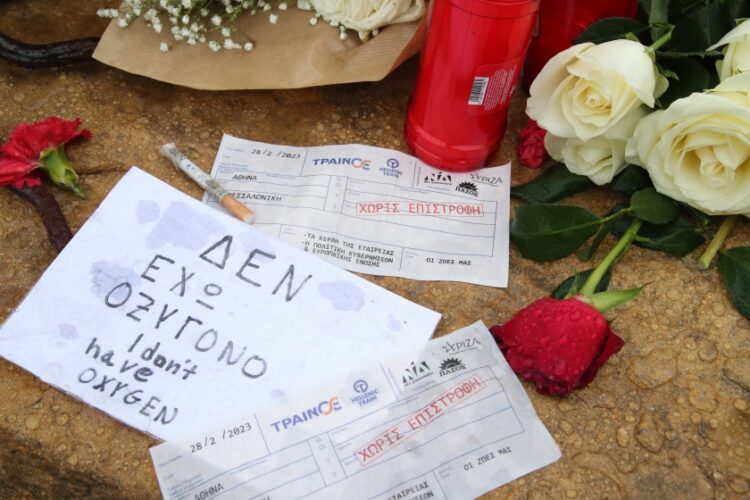 28/2 /2023
ΤΡΑΙΝΟΣΕ
HELLENIC
TRAIN
ΝΔ
ΣΥΡΙΖΑ
ΠΑΣΟΚ
ΑΘΗΝΑ
ΧΩΡΙΣ ΕΠΙΣΤΡΟΦΗ
-ΤΑ ΚΕΡΔΗ ΤΗΣ ΕΤΑΙΡΕΙΑΣ
-Η ΠΟΛΙΤΙΚΗ ΚΥΒΕΡΝΗΣΕΩΝ
& ΕΥΡΩΠΑΪΚΗΣ ΕΝΩΣΗΣ
ΟΙ ΖΩΕΣ ΜΑΣ
ΔΕΝ
ΕΧΩ
ΟΞΥΓΟΝΟ
I don't
have
OXYGEN
28/2 /2023
ΤΡΑΙΝΟΣΕ
HELLENIC
TRAIN
ΝΔ
ΣΥΡΙΖΑ
ΠΑΣΟΚ
ΧΩΡΙΣ ΕΠΙΣΤΡΟΦΗ
ΑΘΗΝΑ
ΕΤΑΙΡΕΙΑΣ
ΟΙ ΖΩΕΣ ΜΑΣ